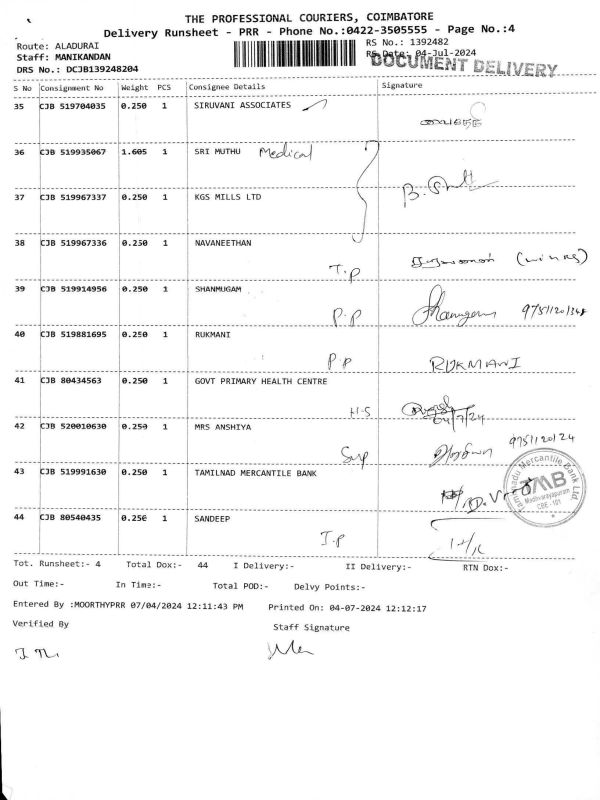 THE PROFESSIONAL COURIERS, COIMBATORE
Delivery Runsheet - PRR - Phone No.:0422-3505555 - Page No.:4
Route: ALADURAI
RS No.: 1392482
Staff: MANIKANDAN
RS Date: 04-Jul-2024
DOCUMENT DELIVERY
DRS No.: DCJB139248204
S No Consignment No Weight PCS Consignee Details Signature
35 CJB 519704035 0.250 1 SIRUVANI ASSOCIATES
36 CJB 519935067 1.605 1 SRI MUTHU Medical
37 CJB 519967337 0.250 1 KGS MILLS LTD
38 CJB 519967336 0.250 1 NAVANEETHAN
T.P
39 CJB 519914956 0.250 1 SHANMUGAM
P.P Shanmugam
40 CJB 519881695 0.250 1 RUKMANI
P.P RUKMANI
41 CJB 80434563 0.250 1 GOVT PRIMARY HEALTH CENTRE
H-S 04/7/24
42 CJB 520010630 0.250 1 MRS ANSHIYA
9751120124
43 CJB 519991630 0.250 1 TAMILNAD MERCANTILE BANK
Tamilnadu Mercantile Bank Ltd.
TMB
Madhvarayapuram
CBE - 101
44 CJB 80540435 0.250 1 SANDEEP
I.P
Tot. Runsheet:- 4 Total Dox:- 44 I Delivery:- II Delivery:- RTN Dox:-
Out Time:- In Time:- Total POD:- Delvy Points:-
Entered By :MOORTHYPRR 07/04/2024 12:11:43 PM Printed On: 04-07-2024 12:12:17
Verified By Staff Signature